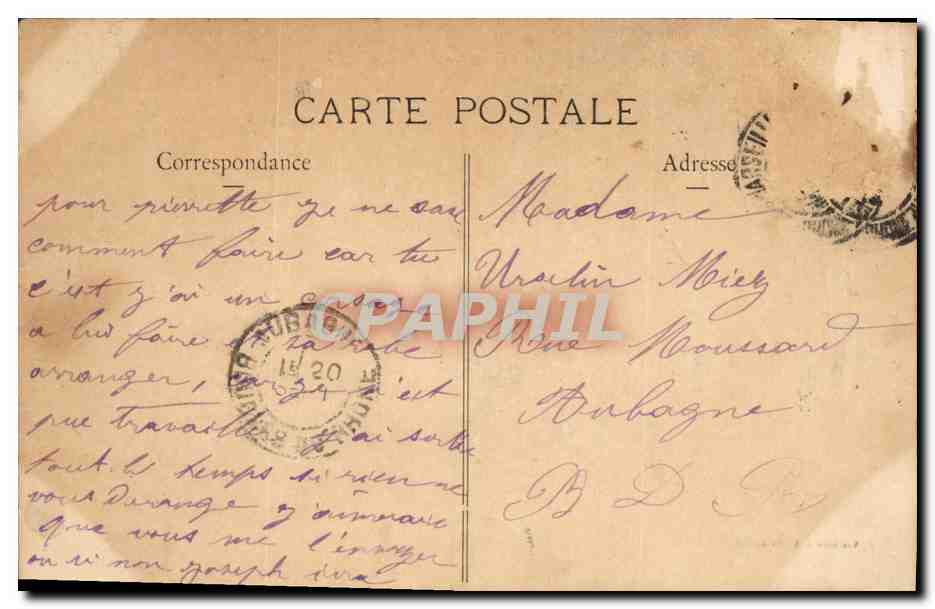 CARTE POSTALE
Correspondance
pour pierrette ge ne sais
comment faire car tu
c'est g'ai un
a lui faire sa robe
arranger, c'est
pue travaille g'ai
tout le temps si rien ne
vous Derange g'aimerais
que vous me l'envoyer
ou si non goseph ira
Adresse
Madame
Urselin Miey
Rue Moussard
Aubagne
B D R
CPAPHIL
AUBAGNE
15 20